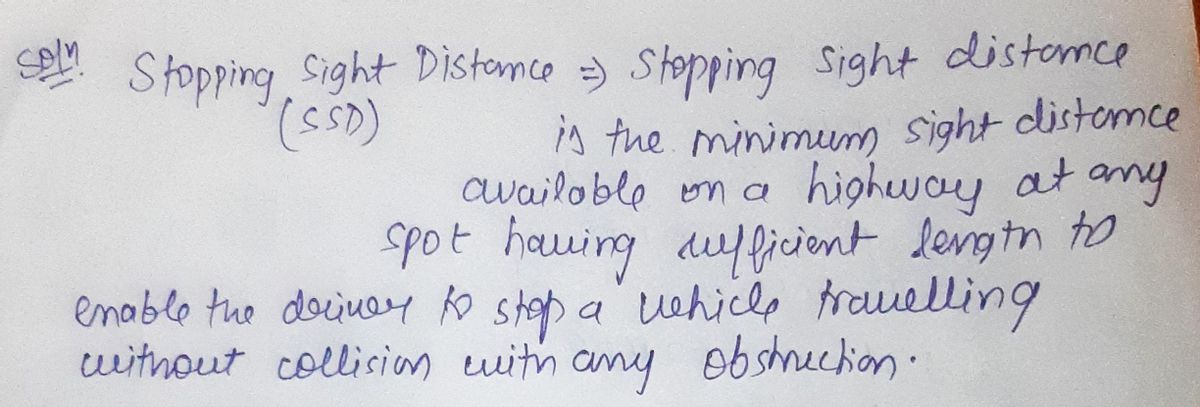 Soln. Stopping Sight Distance ⇒ Stopping Sight distance
(SSD)
is the minimum sight distance
available on a highway at any
spot having sufficient length to
enable the driver to stop a vehicle travelling
without collision with any obstruction.